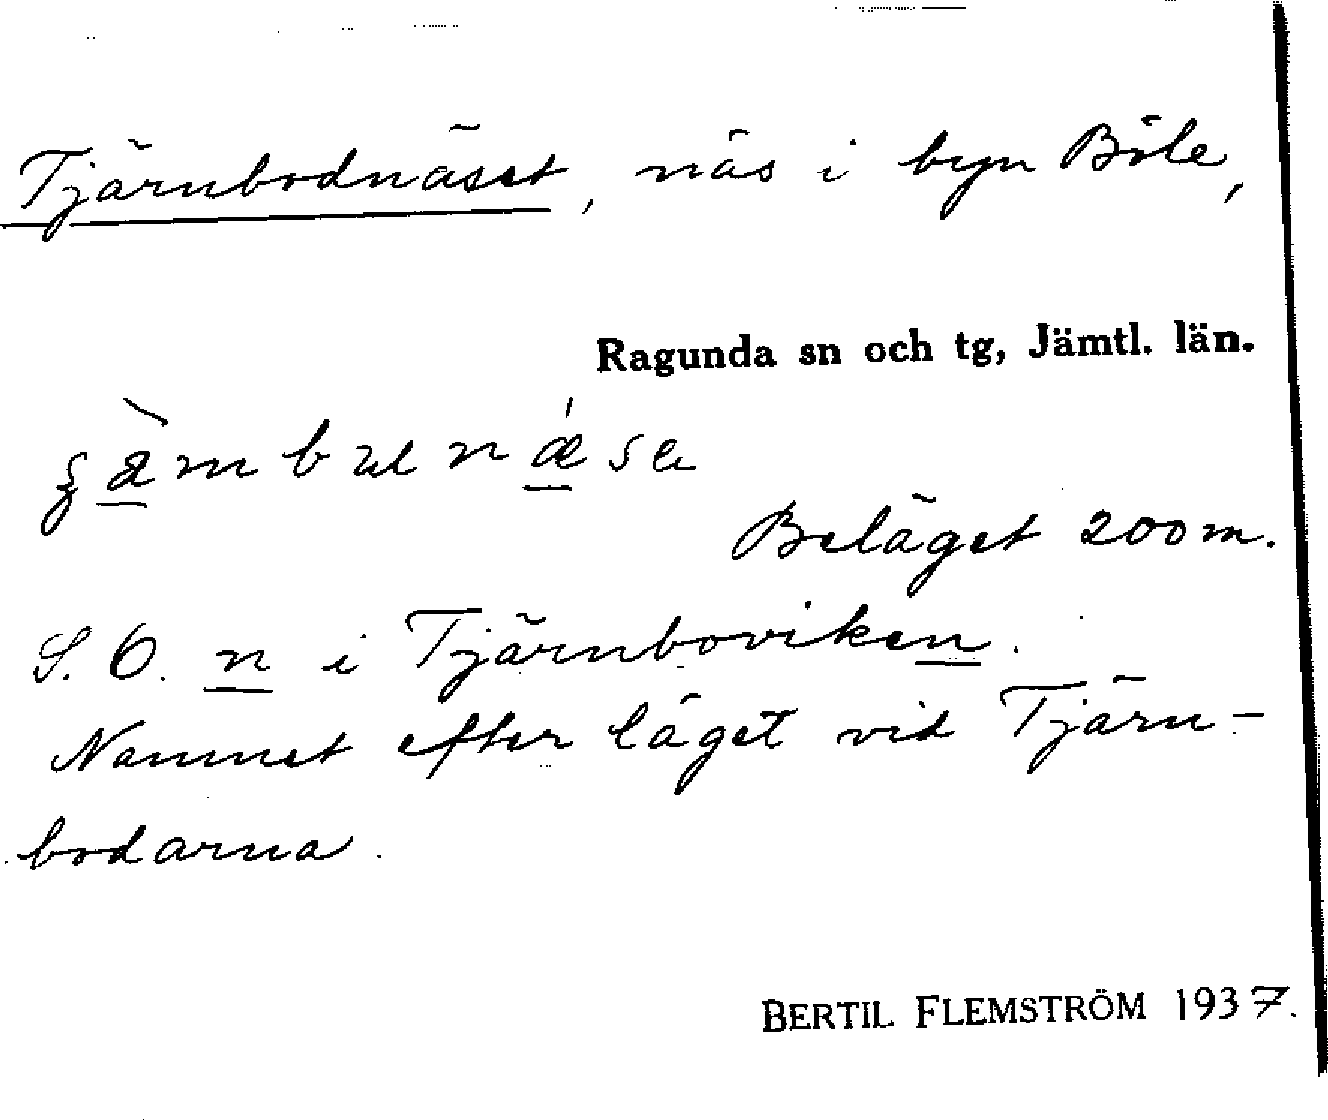 Tjärnbodnäset, näs i byn Böle,
Ragunda sn och tg, Jämtl. län.
Beläget 200 m.
S. O. n i Tjärnboviken.
Namnet efter läget vid Tjärn-
bodarna.
BERTIL FLEMSTRÖM 1937.